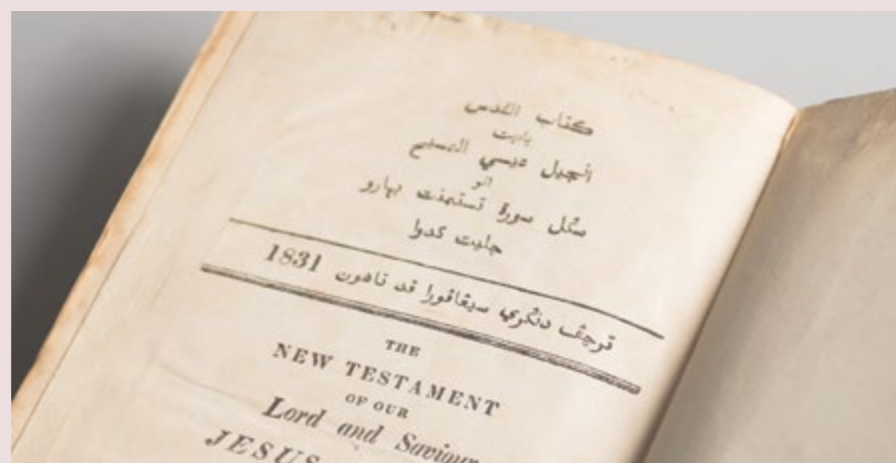 كتاب القدس
يايت
انجيل عيسي المسيح
اتو
سݢل سورة تستمنت بهارو
جليت كدوا
ترچڤ دنݢري سيڠاڤورا ڤد تاهون 1831
THE
NEW TESTAMENT
OF OUR
Lord and Saviour
JESUS